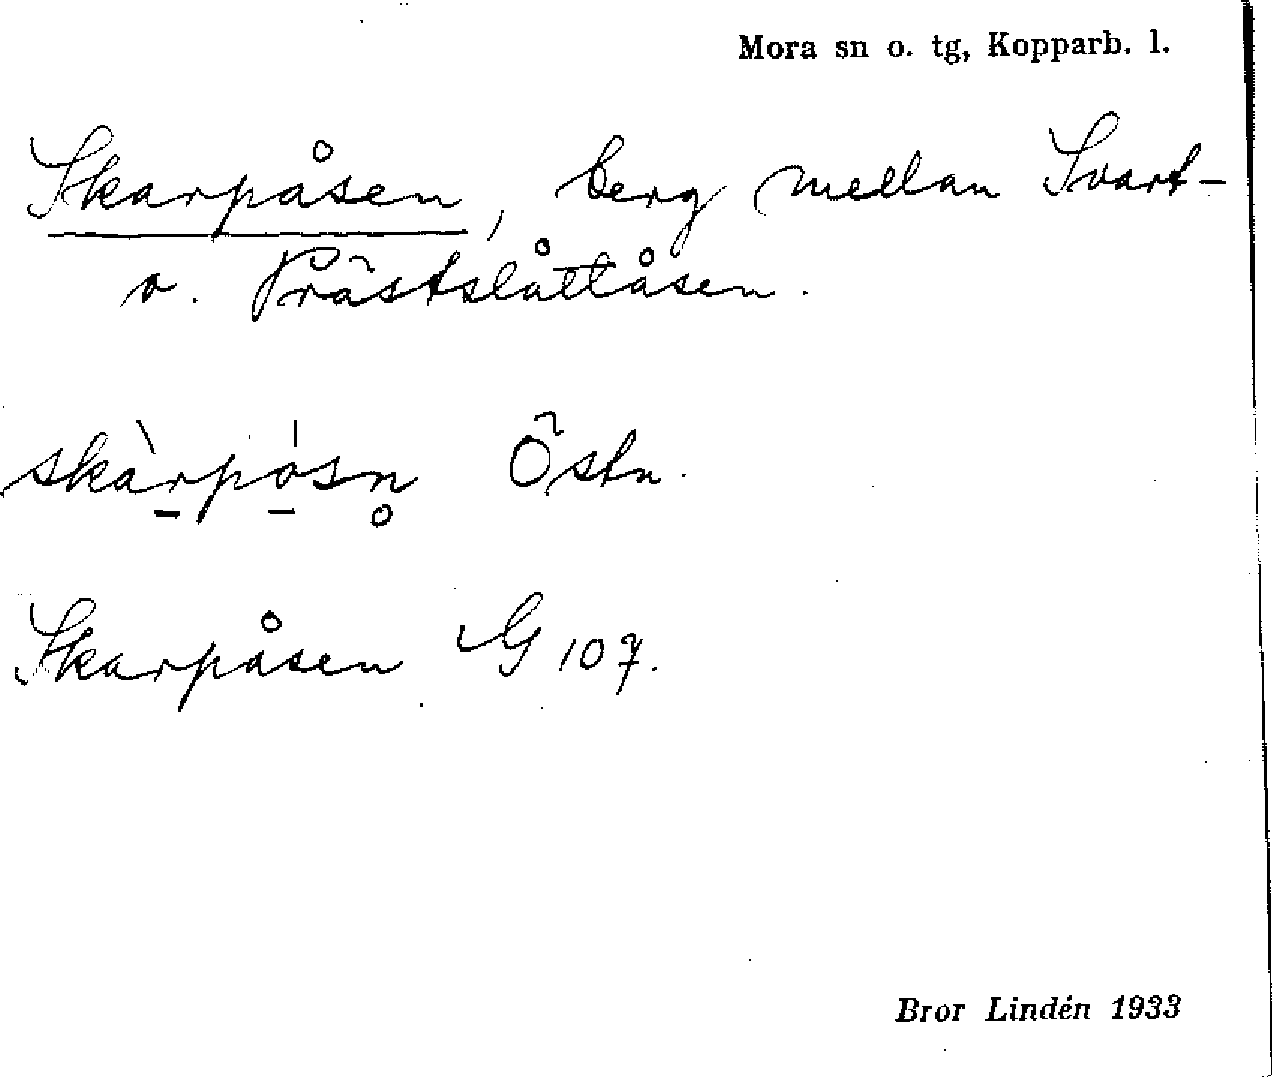 Mora sn o. tg, Kopparb. l.
Skarpåsen, berg mellan Svart-
o. Prästslåttåsen.
skàr̠pó̠sn̥ Östn.
Skarpåsen G 107.
Bror Lindén 1933